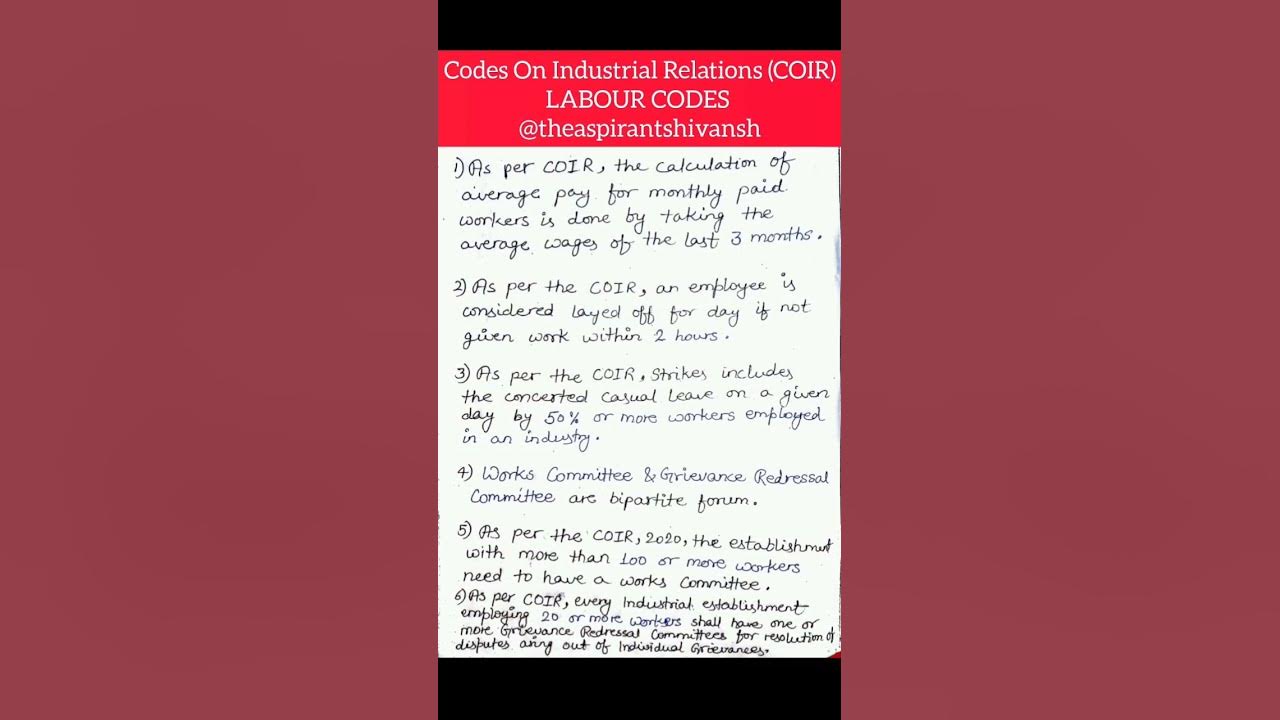 Codes On Industrial Relations (COIR)
LABOUR CODES
@theaspirantshivansh
1) As per COIR, the calculation of
average pay for monthly paid
workers is done by taking the
average wages of the last 3 months.
2) As per the COIR, an employee is
considered layed off for day if not
given work within 2 hours.
3) As per the COIR, Strikes includes
the concerted casual leave on a given
day by 50% or more workers employed
in an industry.
4) Works Committee & Grievance Redressal
Committee are bipartite forum.
5) As per the COIR, 2020, the establishment
with more than 100 or more workers
need to have a works Committee.
6) As per COIR, every Industrial establishment
employing 20 or more workers shall have one or
more Grievance Redressal Committees for resolution of
disputes aring out of Individual Grievances.